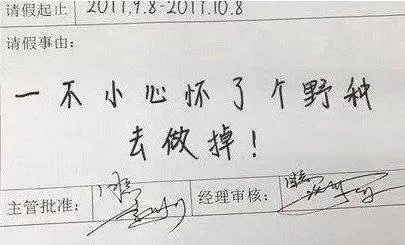 请假起止 2017.9.8-2017.10.8
请假事由：
一不小心怀了个野种
去做掉！
主管批准： 同意
经理审核： 同意